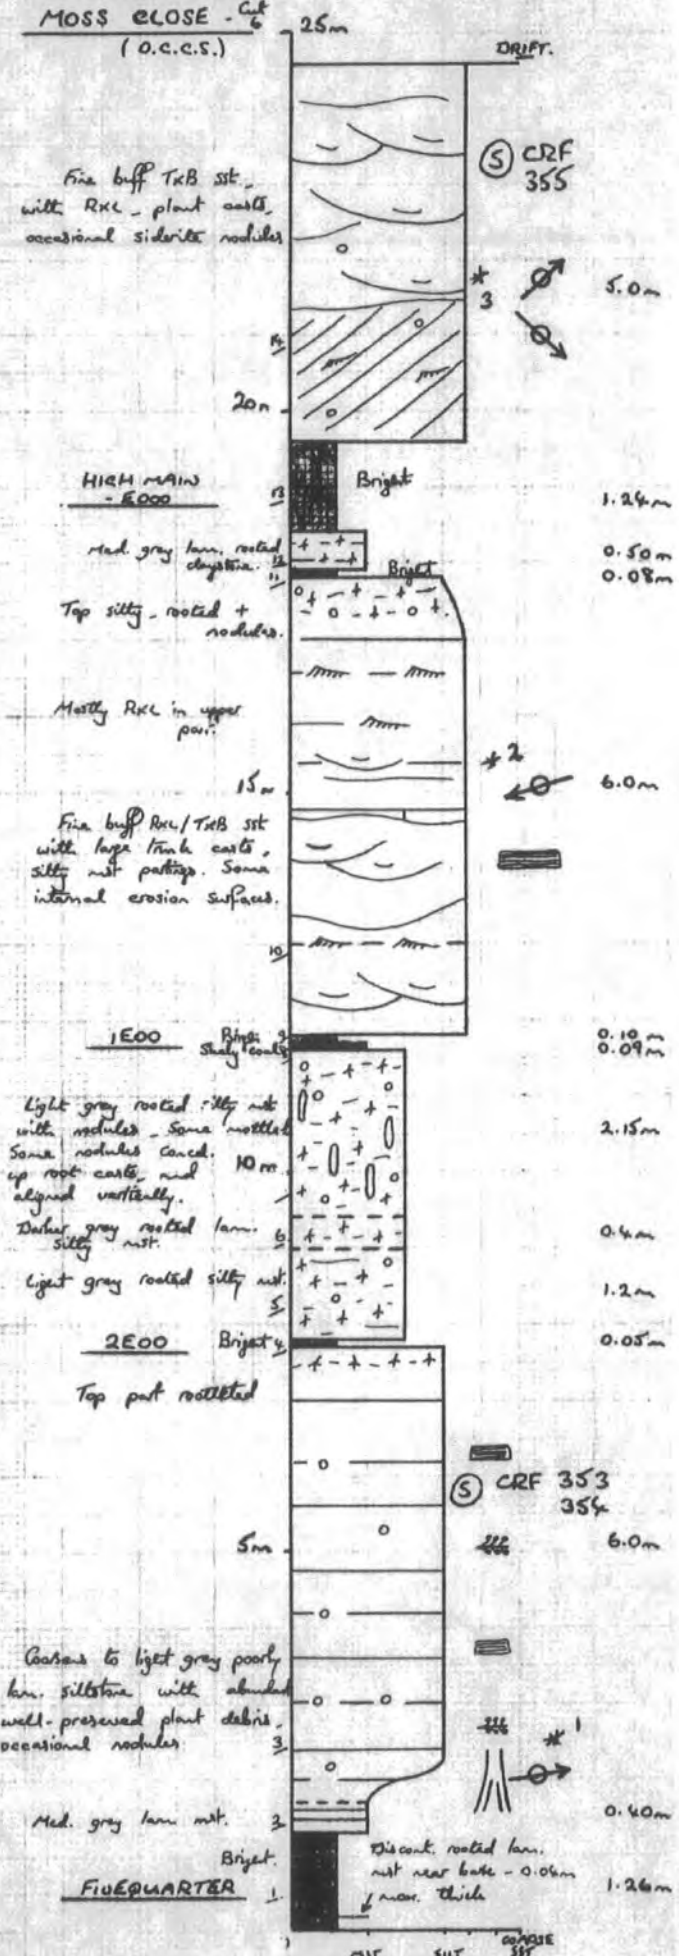 MOSS CLOSE - Cut 6
(O.C.C.S.)
25m
DRIFT.
S CRF
355
Fine buff TxB sst
with RxL - plant casts,
occasional siderite nodules
*
3
5.0m
14
20m
HIGH MAIN
- E000
13
Bright
1.24m
Med. grey lam. rooted
claystone.
12
0.50m
11
Bright
0.08m
Top silty - rooted +
nodules.
Mostly RxL in upper
part.
* 2
15m
6.0m
Fine buff RxL/TxB sst
with large trunk casts,
silty mst partings. Some
internal erosion surfaces.
10
1E00
9
0.10m
Shaly coal
0.09m
Light grey rooted silty mst
with nodules - Some mottled
Some nodules
up root casts, and
aligned vertically.
10m
2.15m
Darker grey rooted lam.
silty mst.
6
0.4m
Light grey rooted silty mst.
5
1.2m
2E00
Bright 4
0.05m
Top part rootleted
S CRF 353
354
5m
6.0m
Coarsens to light grey poorly
lam. siltstone with abundant
well-preserved plant debris,
occasional nodules
3
* 1
Med. grey lam mst.
2
0.40m
Bright.
FIVEQUARTER
1
Discont. rooted lam.
mst near base - 0.06m
max. thick
1.26m
0
MST
SILT
COARSE
SST